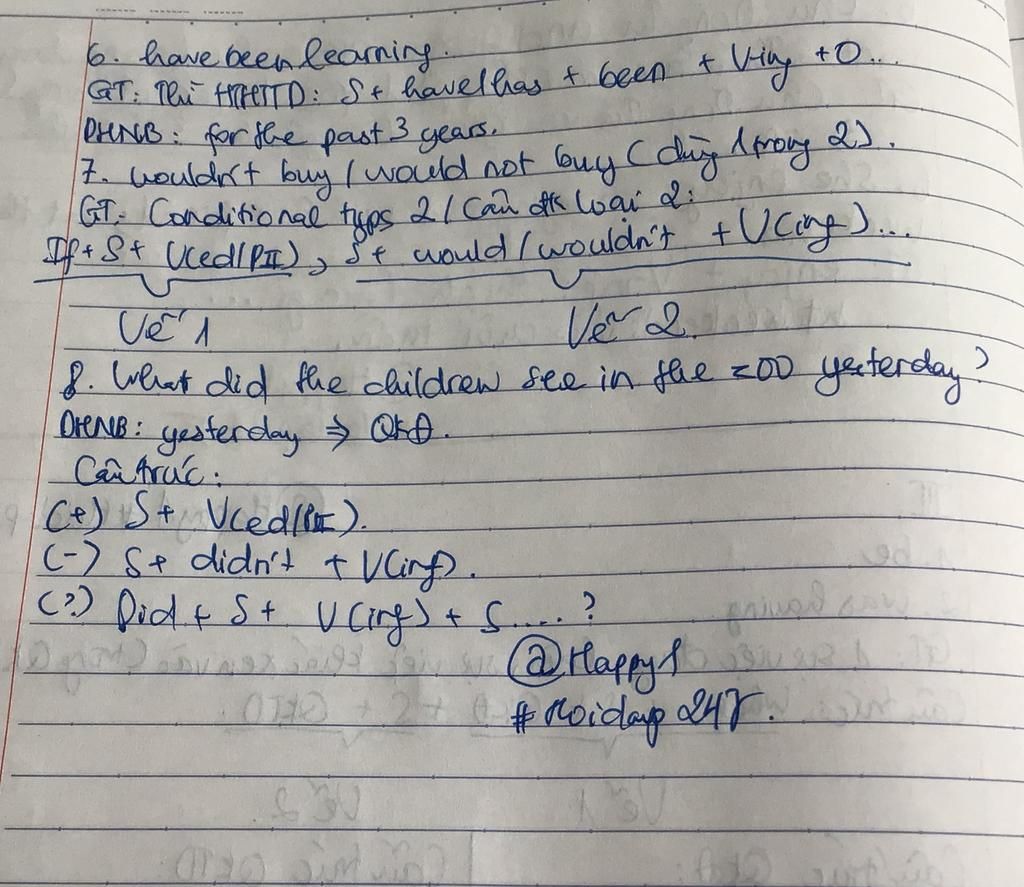 6. have been learning.
GT: Thì HTHTTD: S + have/has + been + V-ing + O...
DHNB: for the past 3 years.
7. wouldn't buy / would not buy (dùng 1 trong 2).
GT: Conditional type 2 / Câu đk loại 2:
If + S + V(ed/PII), S + would / wouldn't + V(inf)...
Vế 1 Vế 2
8. What did the children see in the zoo yesterday?
DHNB: yesterday ⇒ QKĐ.
Cấu trúc:
(+) S + V(ed/PII).
(-) S + didn't + V(inf).
(?) Did + S + V(inf) + S.....?
@Happy1
#Hoidap 247.